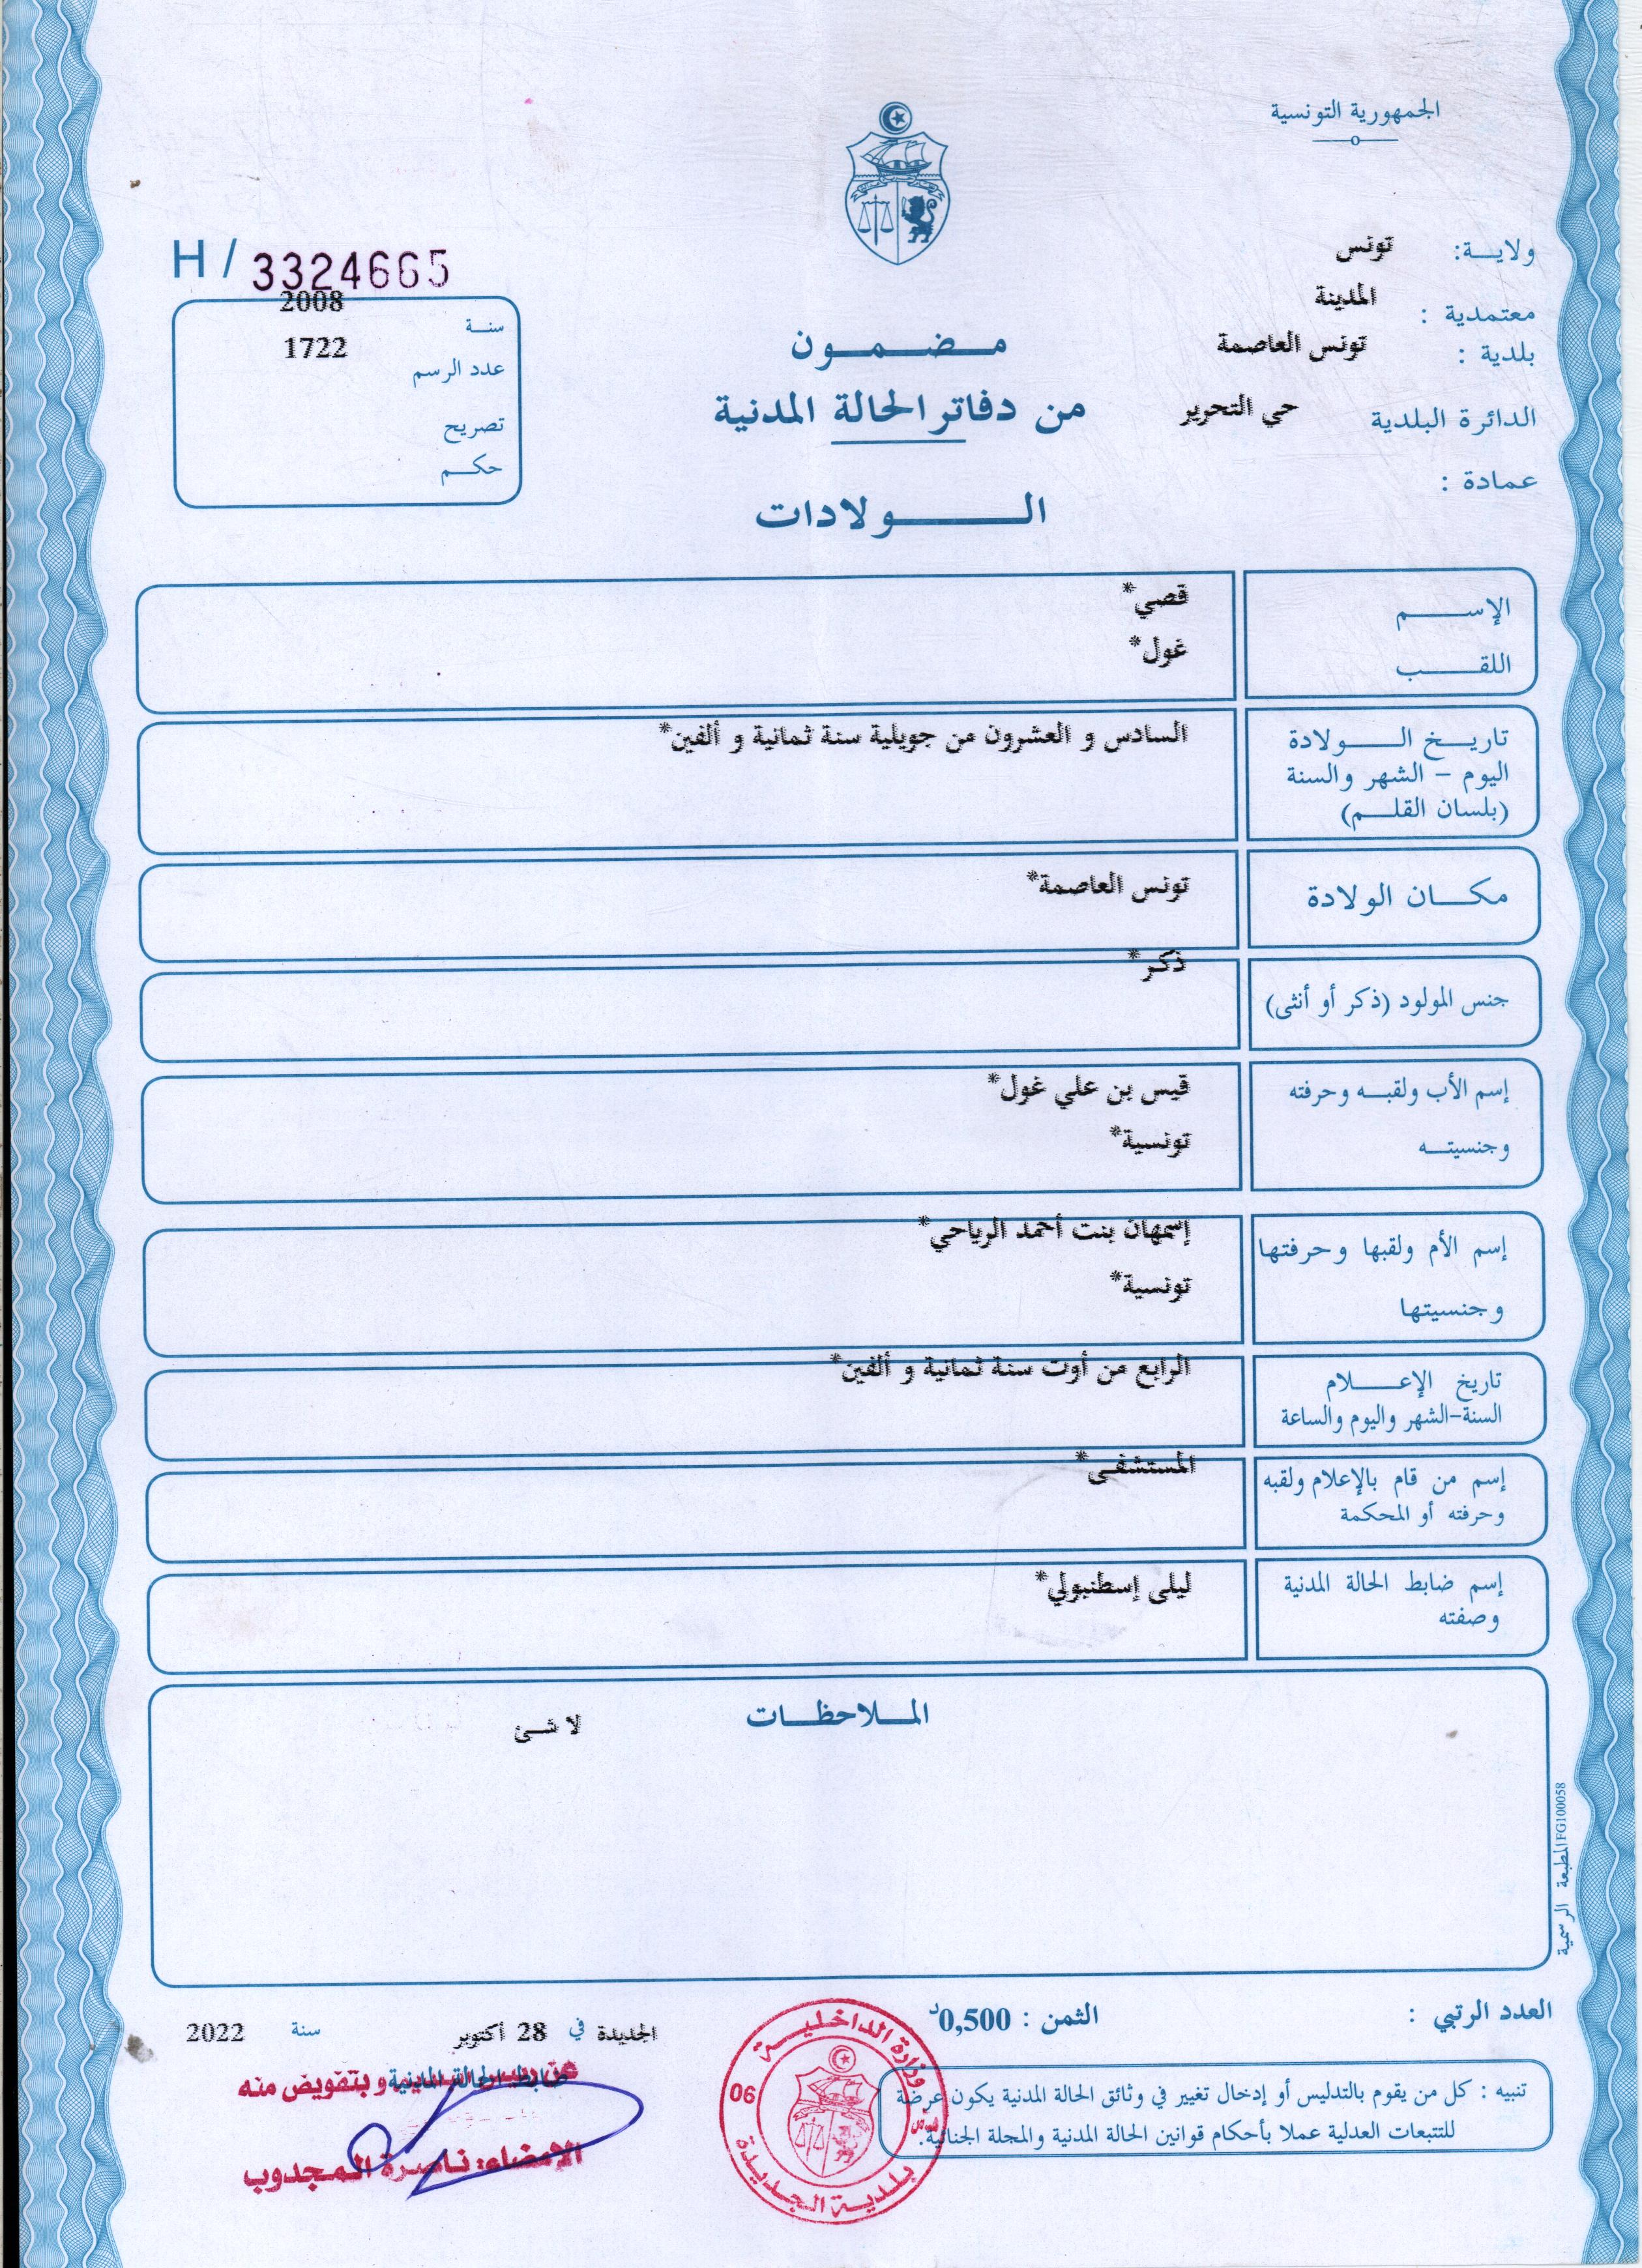 الجمهورية التونسية
ولاية: تونس
معتمدية : المدينة
بلدية : تونس العاصمة
الدائرة البلدية حي التحرير
عمادة :
مضمون
من دفاتر الحالة المدنية
الولادات
H / 3324665
سنة 2008
عدد الرسم 1722
تصريح
حكم
الإسم قصي*
اللقب غول*
تاريخ الولادة السادس و العشرون من جويلية سنة ثمانية و ألفين*
اليوم - الشهر والسنة
(بلسان القلم)
مكان الولادة تونس العاصمة*
جنس المولود (ذكر أو أنثى) ذكر*
إسم الأب ولقبه وحرفته قيس بن علي غول*
وجنسيته تونسية*
إسم الأم ولقبها وحرفتها إسمهان بنت أحمد الرياحي*
وجنسيتها تونسية*
تاريخ الإعلام الرابع من أوت سنة ثمانية و ألفين*
السنة-الشهر واليوم والساعة
إسم من قام بالإعلام ولقبه المستشفى*
وحرفته أو المحكمة
إسم ضابط الحالة المدنية ليلى إسطنبولي*
وصفته
الملاحظات
لا شئ
المطبعة الرسمية FG100058
العدد الرتبي :
الثمن : 0,500د
الجديدة في 28 أكتوبر سنة 2022
تنبيه : كل من يقوم بالتدليس أو إدخال تغيير في وثائق الحالة المدنية يكون عرضة
للتتبعات العدلية عملا بأحكام قوانين الحالة المدنية والمجلة الجنائية.
وزارة الداخلية
06
بلدية الجديدة
ضابط الحالة المدنية
و بتفويض منه
الإمضاء: ناصرة المجدوب